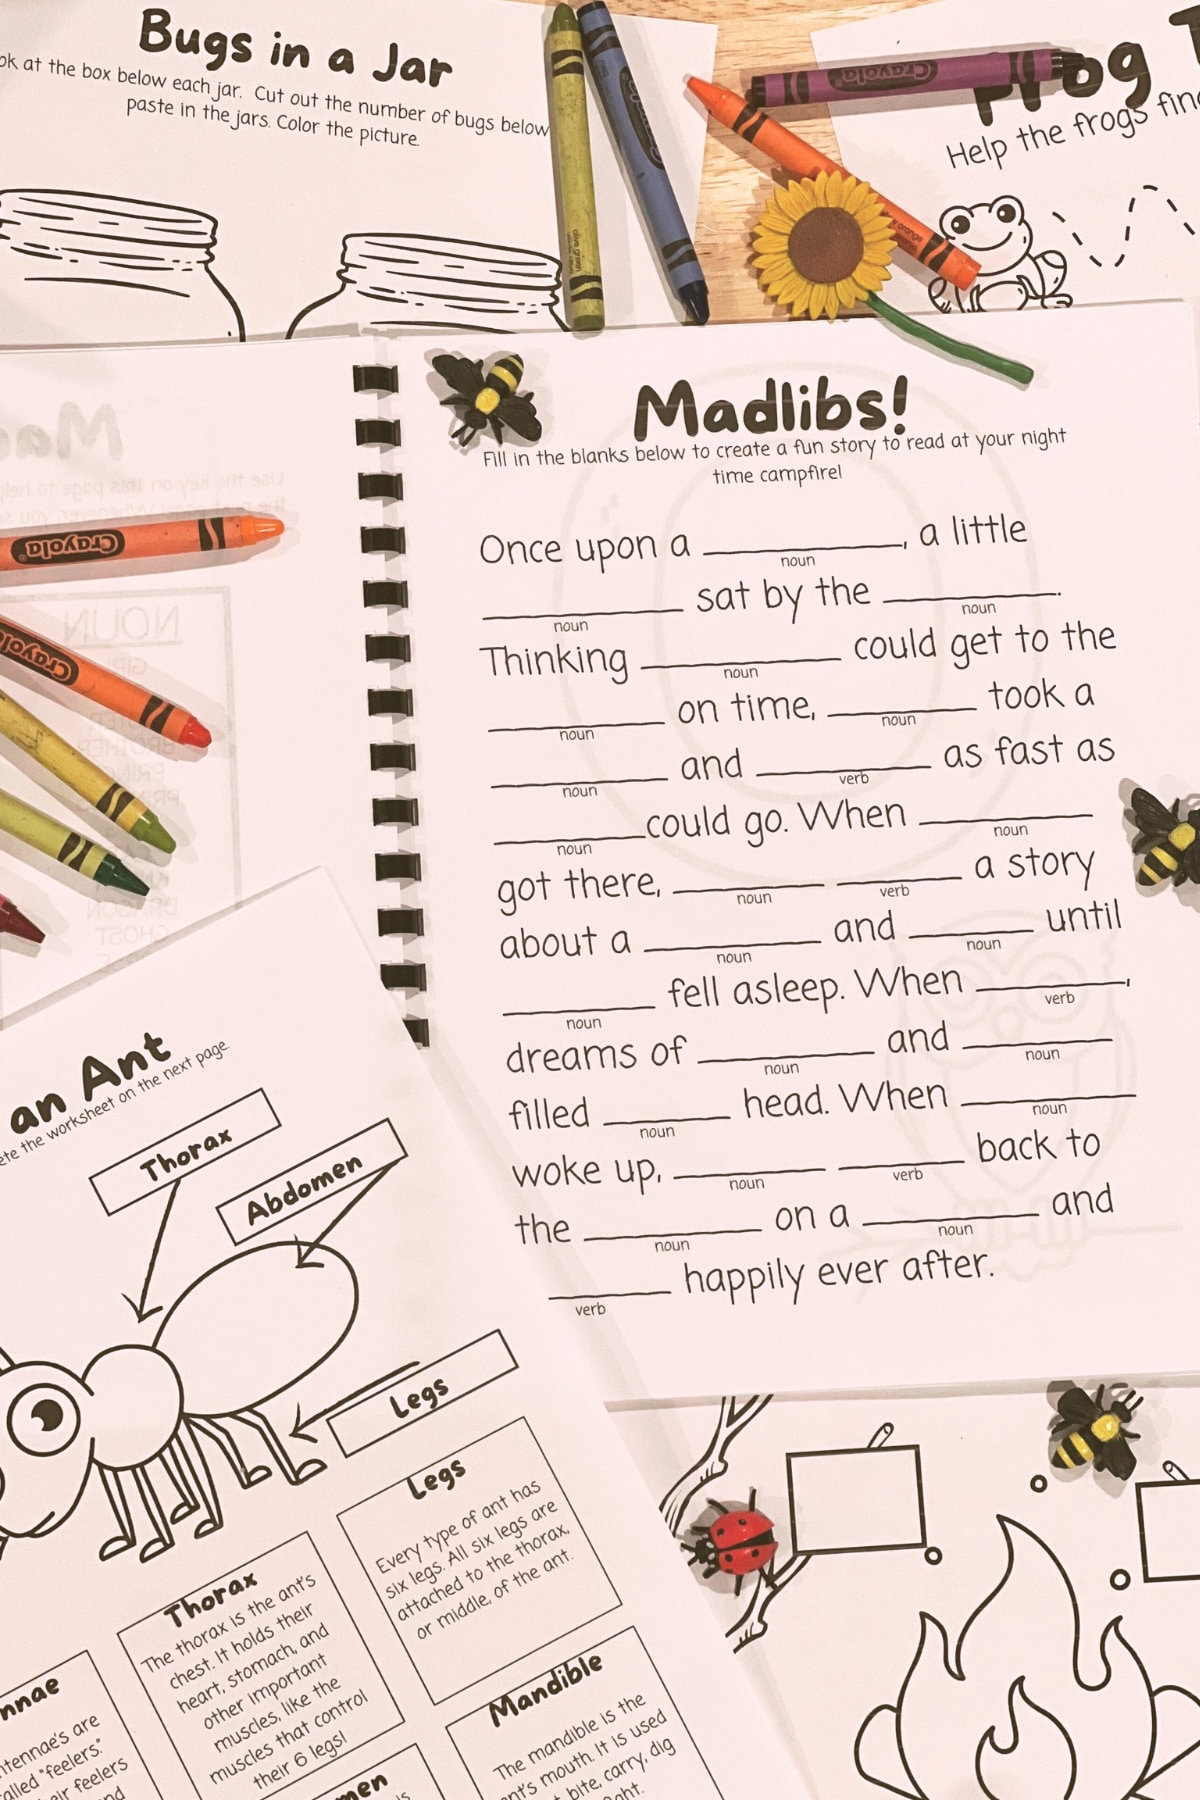 Bugs in a Jar
at the box below each jar. Cut out the number of bugs below
paste in the jars. Color the picture.
Crayola
olive green
Frog
Help the frogs
Madlibs!
Fill in the blanks below to create a fun story to read at your night
time campfire!
Once upon a ____, a little
noun
____ sat by the ____.
noun noun
Thinking ____ could get to the
noun
____ on time, ____ took a
noun noun
____ and ____ as fast as
noun verb
____could go. When ____
noun noun
got there, ____ ____ a story
noun verb
about a ____ and ____ until
noun noun
____ fell asleep. When ____,
noun verb
dreams of ____ and ____
noun noun
filled ____ head. When ____
noun noun
woke up, ____ ____ back to
noun verb
the ____ on a ____ and
noun noun
____ happily ever after.
verb
Crayola
Crayola
NOUN
an Ant
the worksheet on the next page.
Thorax
Abdomen
Legs
Legs
Every type of ant has
six legs. All six legs are
attached to the thorax,
or middle, of the ant.
Thorax
The thorax is the ant's
chest. It holds their
heart, stomach, and
other important
muscles, like the
muscles that control
their 6 legs!
Mandible
The mandible is the
mouth. It is used
bite, carry, dig
are
"feelers."
feelers